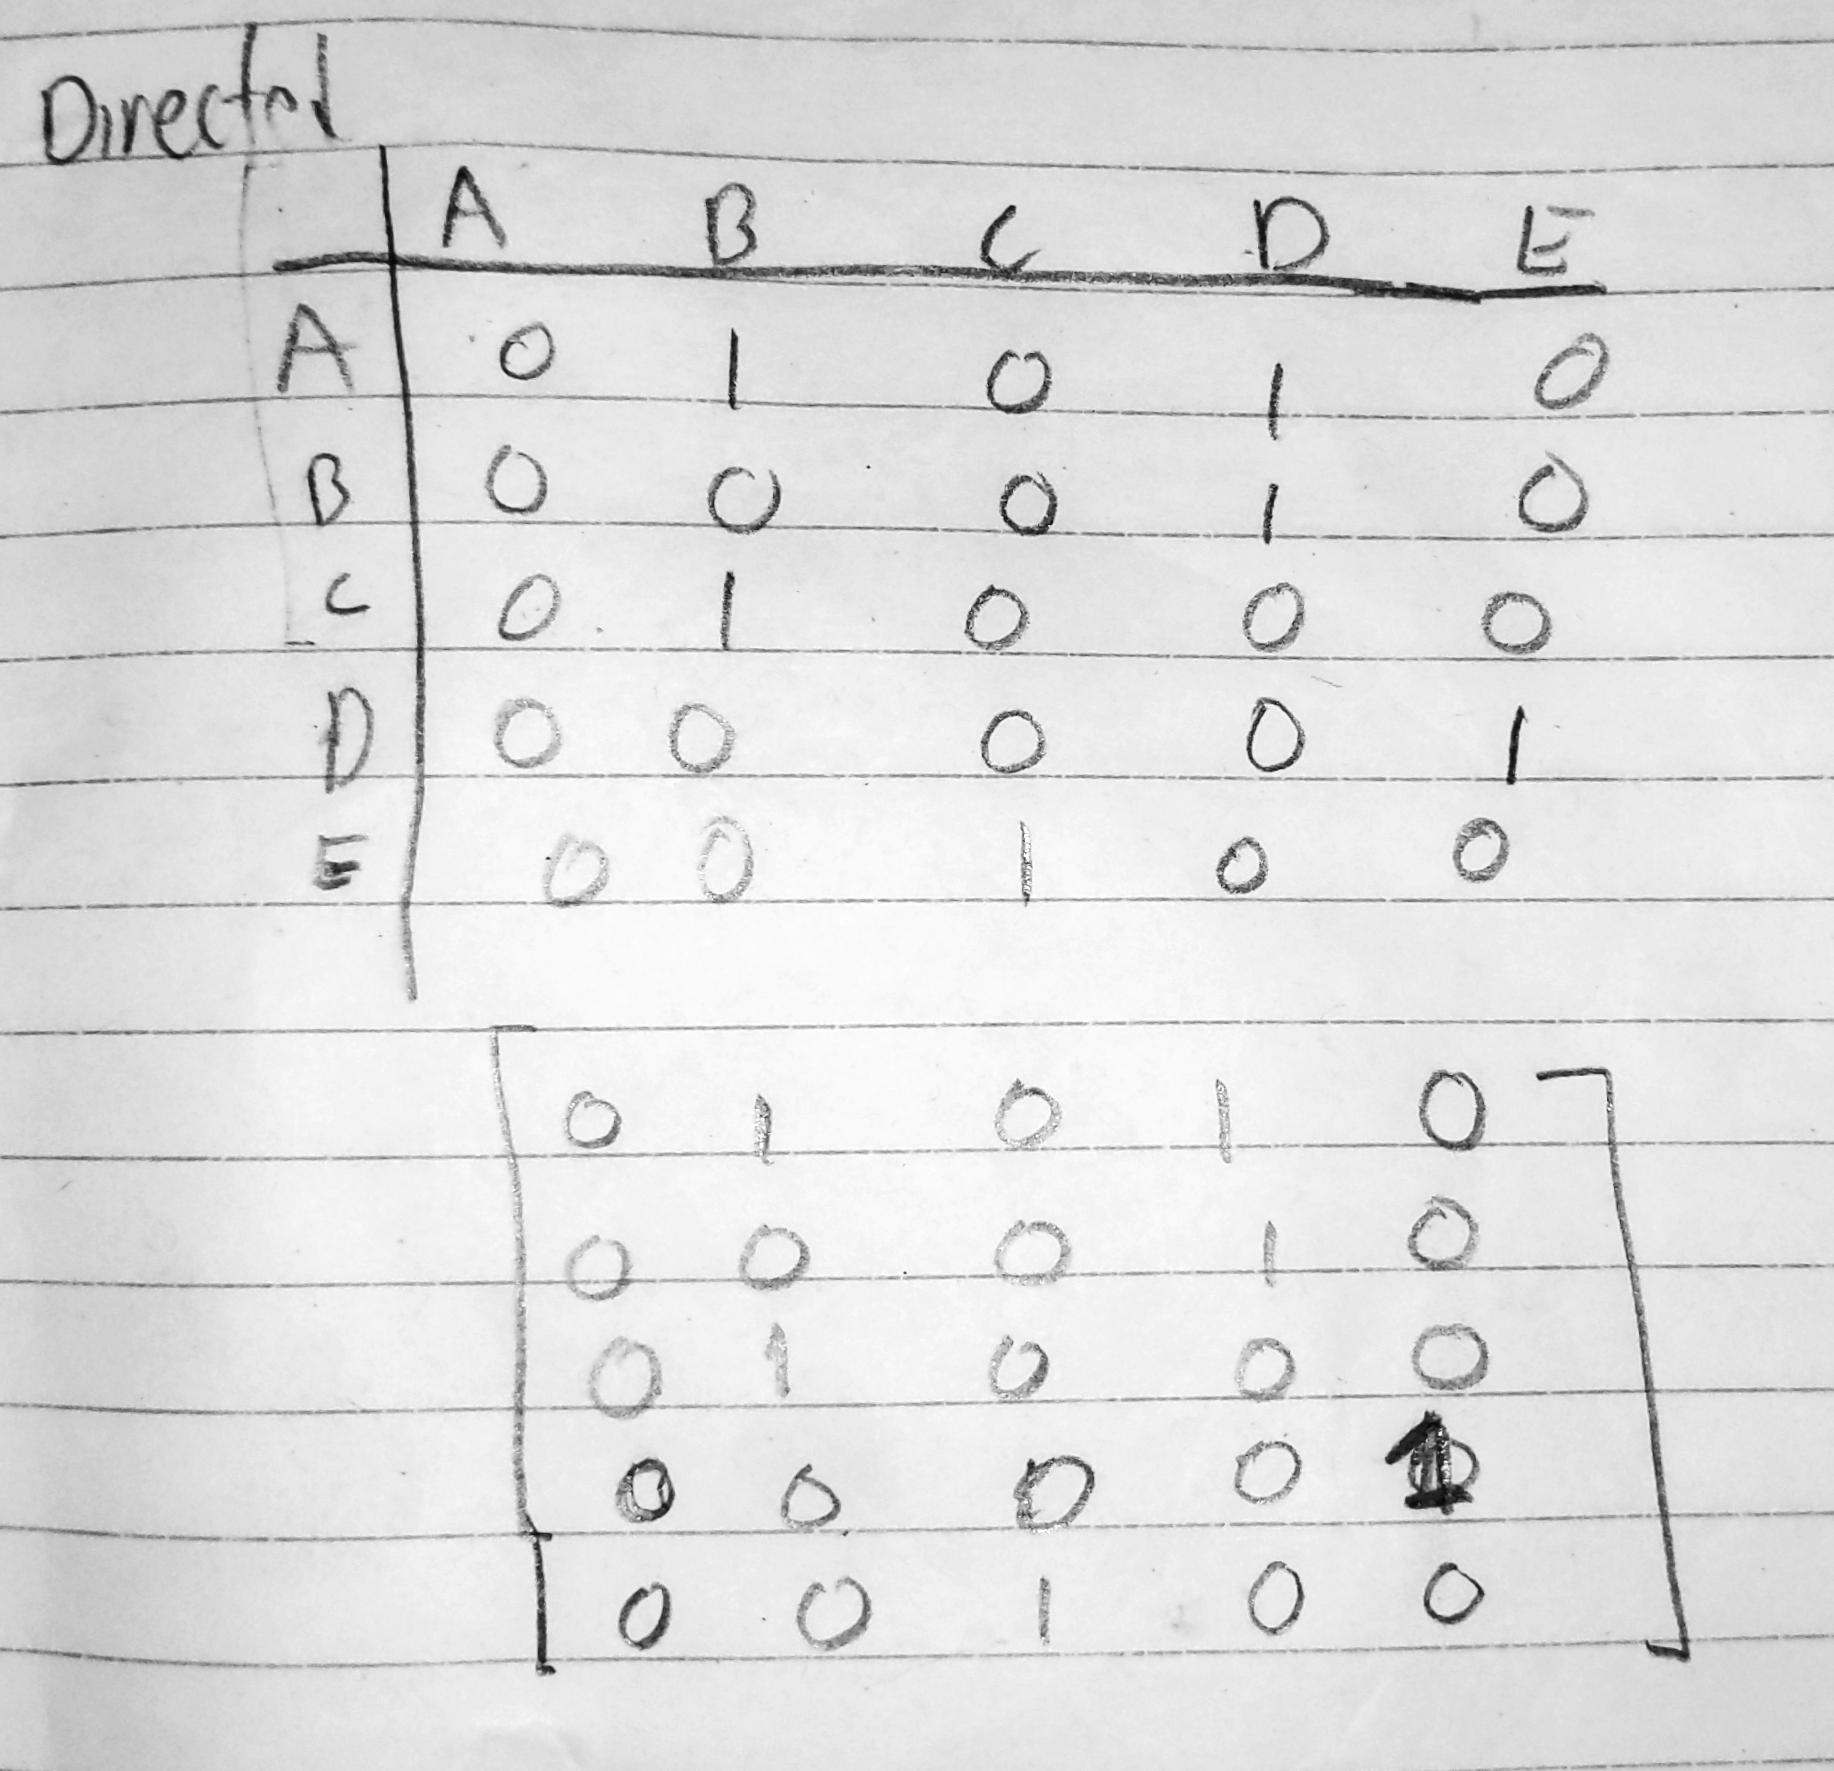 Directed
A B C D E
A 0 1 0 1 0
B 0 0 0 1 0
C 0 1 0 0 0
D 0 0 0 0 1
E 0 0 1 0 0
0 1 0 1 0
0 0 0 1 0
0 1 0 0 0
0 0 0 0 1
0 0 1 0 0